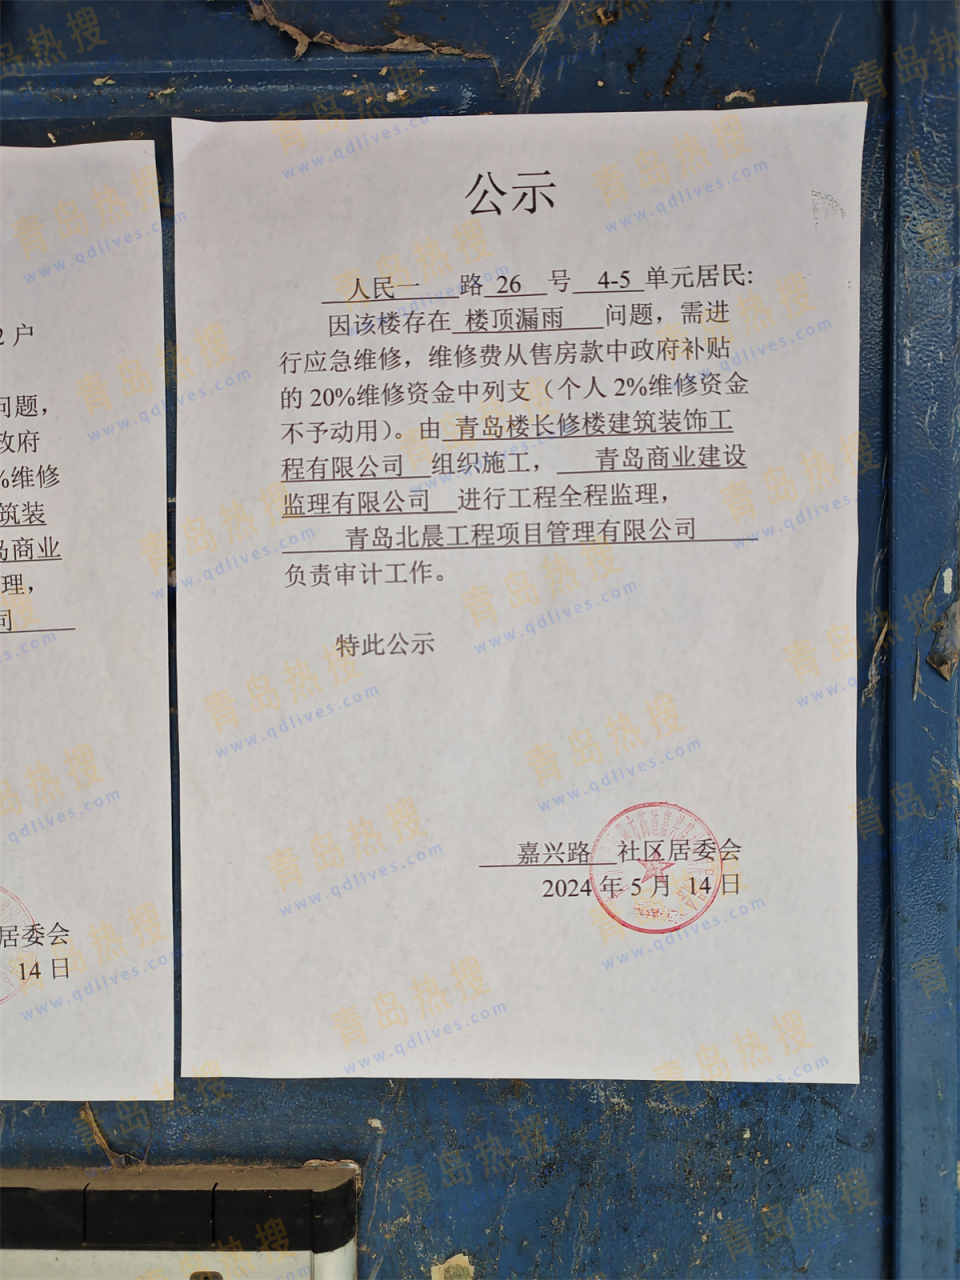 公示
人民一 路 26 号 4-5 单元居民:
因该楼存在 楼顶漏雨 问题，需进
行应急维修，维修费从售房款中政府补贴
的 20%维修资金中列支（个人 2%维修资金
不予动用）。由 青岛楼长修楼建筑装饰工
程有限公司 组织施工， 青岛商业建设
监理有限公司 进行工程全程监理，
青岛北晨工程项目管理有限公司
负责审计工作。
特此公示
嘉兴路 社区居委会
2024 年 5 月 14 日
2 户
问题，
政府
%维修
筑装
岛商业
理，
司
居委会
14 日
青岛热搜
www.qdlives.com